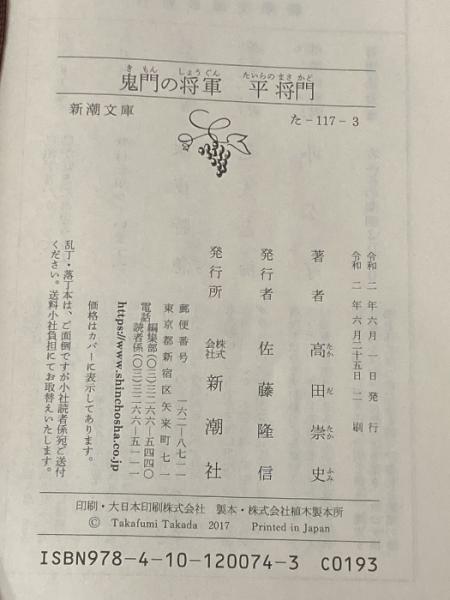 きもん しょうぐん たいらの まさ かど
鬼門の将軍 平 将門
新潮文庫 た - 117 - 3
令和 二 年 六 月 一 日 発 行
令和 二 年 六 月 二十五 日 二 刷
著者 高田崇史
たか だ たか ふみ
発行者 佐藤隆信
発行所 株式会社 新潮社
郵便番号 一六二―八七一一
東京都新宿区矢来町七一
電話 編集部(〇三)三二六六―五四四〇
読者係(〇三)三二六六―五一一一
https://www.shinchosha.co.jp
価格はカバーに表示してあります。
乱丁・落丁本は、ご面倒ですが小社読者係宛ご送付
ください。送料小社負担にてお取替えいたします。
印刷・大日本印刷株式会社 製本・株式会社植木製本所
© Takafumi Takada 2017 Printed in Japan
ISBN978-4-10-120074-3 C0193